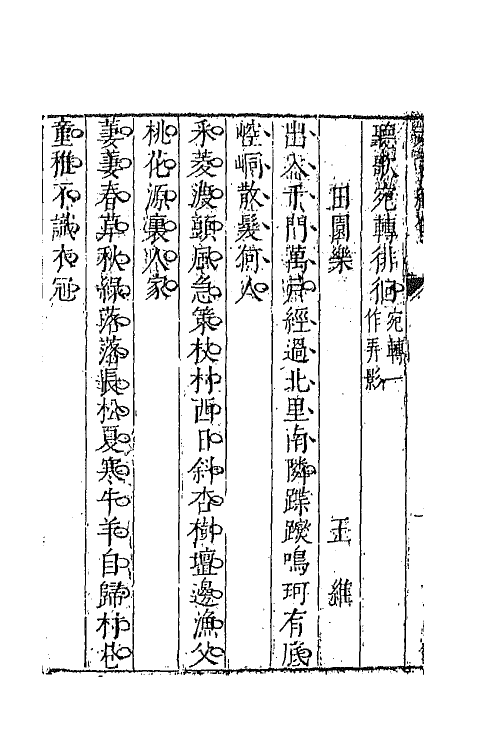 聽歌宛轉徘徊宛轉一作弄影
田園樂 王維
出入千門萬戶經過北里南隣蹀躞鳴珂有底
崆峒散髮何人
采菱渡頭風急策杖村西日斜杏樹壇邊漁父
桃花源裏人家
萋萋春草秋綠落落長松夏寒牛羊自歸村巷
童稚不識衣冠